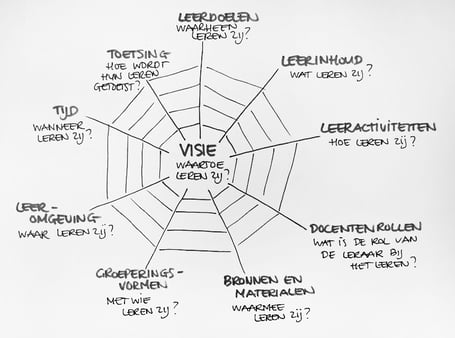 LEERDOELEN
WAARHEEN
LEREN ZIJ?
LEERINHOUD
WAT LEREN ZIJ?
LEERACTIVITEITEN
HOE LEREN ZIJ?
DOCENTENROLLEN
WAT IS DE ROL VAN
DE LERAAR BIJ
HET LEREN?
BRONNEN EN
MATERIALEN
WAARMEE
LEREN ZIJ?
GROEPERINGS-
VORMEN
MET WIE
LEREN ZIJ?
LEER-
OMGEVING
WAAR LEREN ZIJ?
TIJD
WANNEER
LEREN ZIJ?
TOETSING
HOE WORDT
HUN LEREN
GETOETST?
VISIE
WAARTOE
LEREN ZIJ?